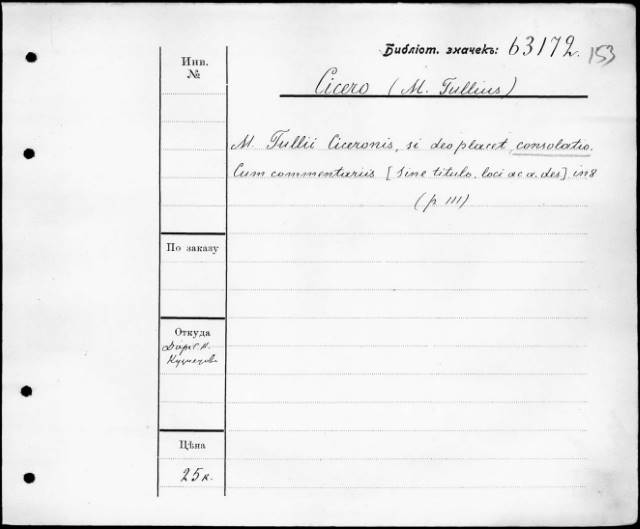 Библіот. значекъ: 63172. 153
Инв.
№
Cicero (M. Tullius)
M. Tullii Ciceronis, si deo placet, consolatio.
Cum commentariis [Sine titulo, loci ac a. des] in 8
(p. III)
По заказу
Откуда
Даръ
Кузнецова
Цѣна
25 к.